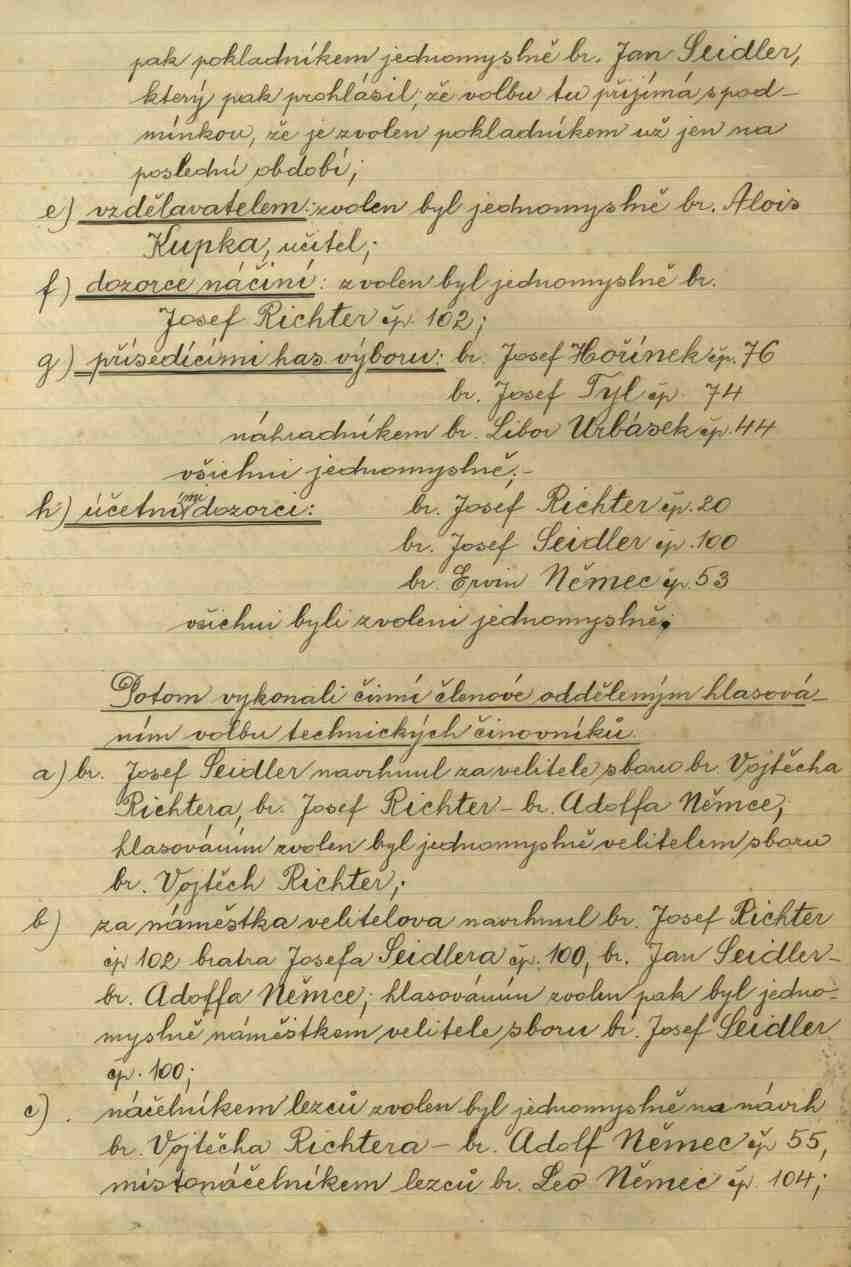 pak pokladníkem jednomyslně br. Jan Seidler,
který pak prohlásil, že volbu tu přijímá s pod-
mínkou, že je zvolen pokladníkem už jen na
poslední období;
e) vzdělavatelem: zvolen byl jednomyslně br. Alois
Kupka, učitel;
f) dozorce náčiní: zvolen byl jednomyslně br.
Josef Richter čp. 102;
g) přísedícími has. výboru: br. Josef Hořínek čp. 76
br. Josef Tyl čp. 74
náhradníkem br. Libor Urbásek čp. 44
všichni jednomyslně;-
h) účetními dozorci: br. Josef Richter čp. 20
br. Josef Seidler čp. 100
br. Ervin Němec čp. 53
všichni byli zvoleni jednomyslně;
Potom vykonali činní členové odděleným hlasová-
ním volbu technických činovníků.
a) br. Josef Seidler navrhnul za velitele sboru br. Vojtěcha
Richtera, br. Josef Richter - br. Adolfa Němce;
hlasováním zvolen byl jednomyslně velitelem sboru
br. Vojtěch Richter;
b) za náměstka velitelova navrhnul br. Josef Richter
čp 102 bratra Josefa Seidlera čp. 100, br. Jan Seidler-
br. Adolfa Němce; hlasováním zvolen pak byl jedno-
myslně náměstkem velitele sboru br. Josef Seidler
čp. 100;
c) náčelníkem lezců zvolen byl jednomyslně na návrh
br. Vojtěcha Richtera - br. Adolf Němec čp 55,
místonáčelníkem lezců br. Leo Němec čp. 104;